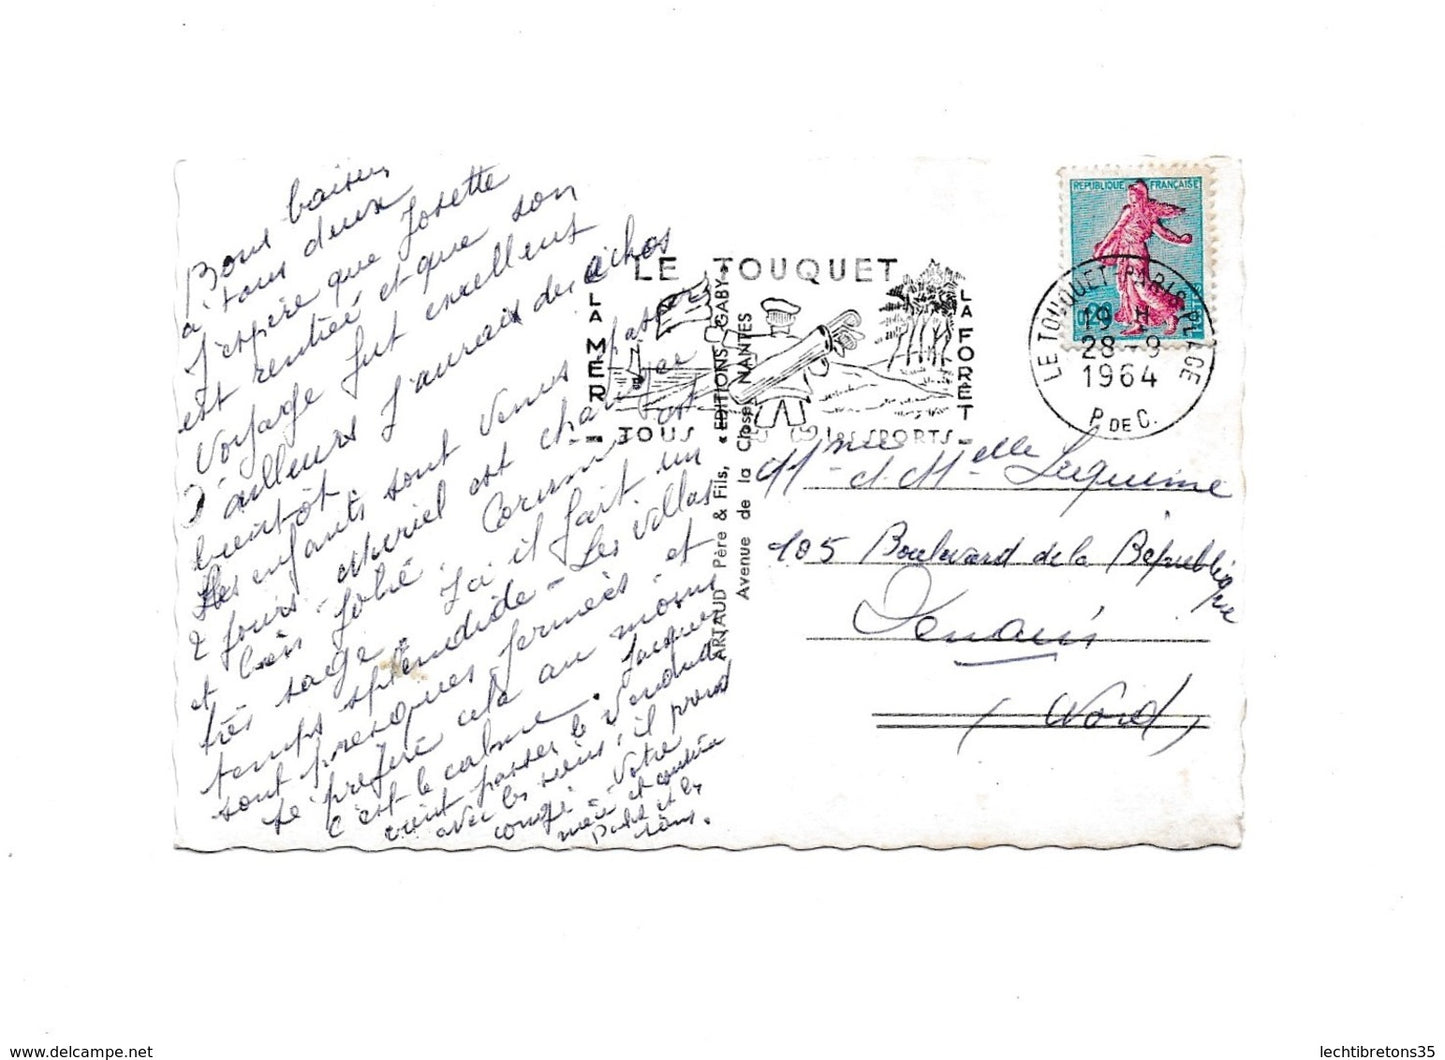 Bons baisers
à tous deux
J'espère que Josette
est rentrée et que son
voyage fut excellent
D'ailleurs j'aurais des échos
bientôt.
Les enfants sont venus passer
2 jours - Muriel est changée
et très jolie. Corinne est
très sage. Ici il fait un
temps splendide - Les villas
sont presques fermées et
je préfère cela au moins
c'est le calme. Jacques
vient passer le Vendredi
avec les siens, il prend
congé. Votre
mère et
LE TOUQUET
LA MER
LA FORET
TOUS LES SPORTS
ARTAUD Père & Fils, « EDITIONS GABY »
Avenue de la Close, NANTES
REPUBLIQUE FRANÇAISE
0,20
LE TOUQUET PARIS PLAGE
19 H
28 - 9
1964
P. DE C.
Mme et Melle Luquime
105 Boulevard de la République
Denain
(Nord)
lechtibretons35